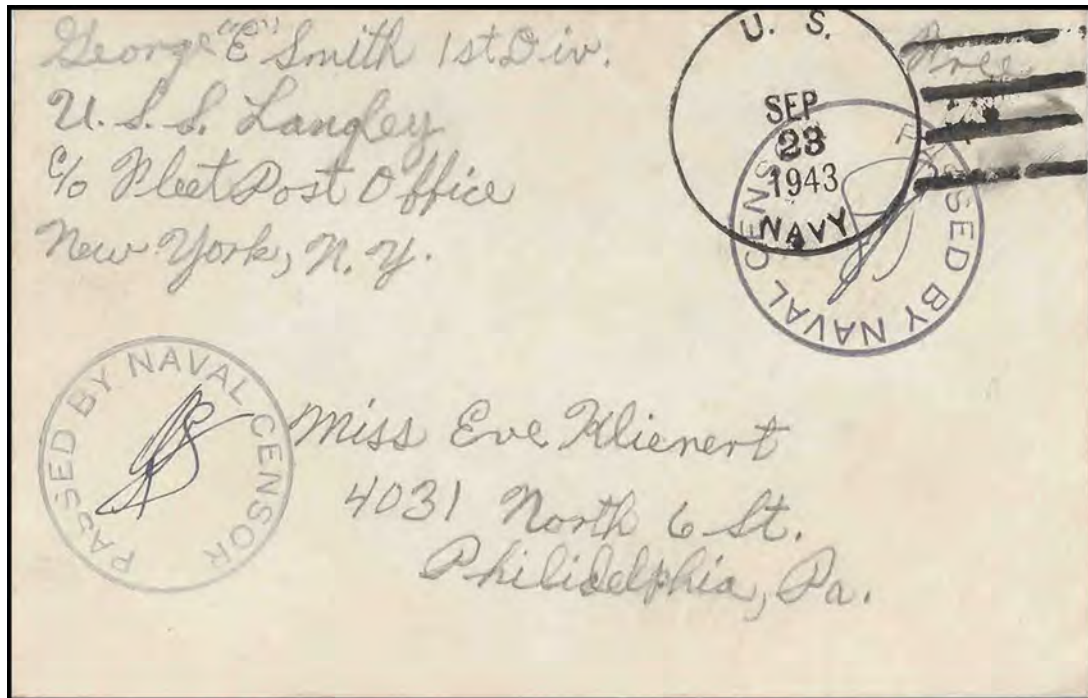 George "E" Smith 1st Div.
U.S.S. Langley
c/o Fleet Post Office
New York, N.Y.
Free
U. S.
SEP
23
1943
NAVY
PASSED BY NAVAL CENSOR
PASSED BY NAVAL CENSOR
Miss Eve Klienert
4031 North 6 St.
Philidelphia, Pa.